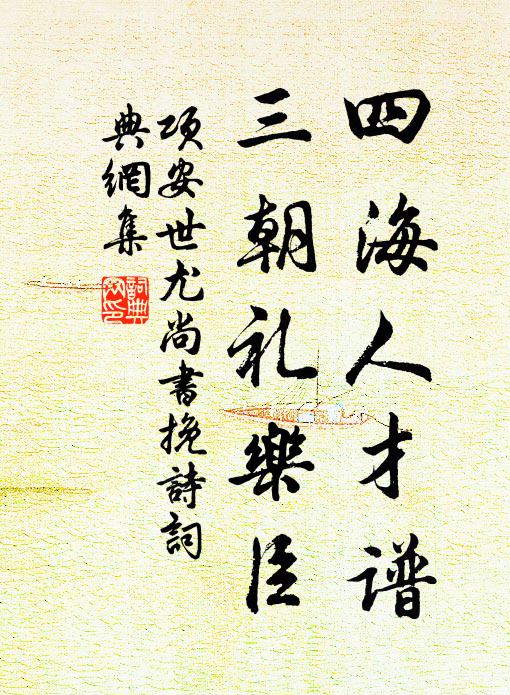 四海人才谱
三朝礼樂臣
项安世尤尚書挽詩詞
典網集
詞典